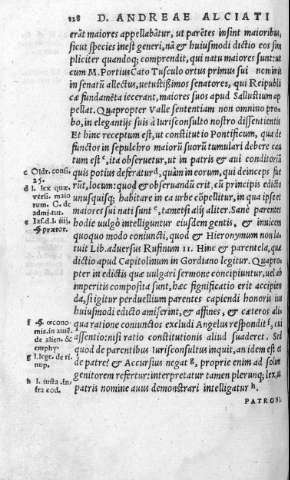 128 D. ANDREAE ALCIATI
erāt maiores appellabātur, ut parētes insint maioribus,
sicut species inest generi, nā & huiusmodi dictio eos sim
pliciter quandoq; comprendit, qui natu maiores sunt: ut
cum M. Portius Cato Tusculo ortus primus sui nominis
in senatū allectus, uetustissimos senatores, qui Reipubli
cæ fundamēta iecerant, maiores suos apud Sallustium ap
pellat. Quapropter Vallæ sententiam non omnino pro-
bo, in elegantijs suis à Iurisconsulto nostro dissentientis.
Et hinc receptum est, ut constitutio Pontificum, qua de
functos in sepulchro maiorū suorū tumulari debere cau
tum est c, ita obseruetur, ut in patris & aui conditoriū
quis potius deferatur d, quàm in eorum, qui deinceps fue
rūt, locum: quod & obseruandū erit, cū principis edicto
unusquisq; habitare in ea urbe cōpellitur, in qua ipsius
maiores sui nati sunt e, tametsi alij aliter. Sanè parentes
hodie uulgò intelliguntur eiusdem gentis, & inuicem
quoquo modo coniuncti, quod & Hieronymum non la-
tuit Lib. aduersus Ruffinum II. Hinc & parentela, quæ
dictio apud Capitolinum in Gordiano legitur. Quapro-
pter in edictis quæ uulgari sermone concipiuntur, uel ab
imperitis composita sunt, hæc significatio erit accipien
da, si igitur perduellium parentes capiendi honorū ius
huiusmodi edicto amiserint, & affines, & cæteros ali
qua ratione coniunctos excludi Angelus respondit f, cui
assentior: nisi ratio constitutionis aliud suaderet. Sed
quod de parentibus Iurisconsultus inquit, an idem est &
de patre? & Accursius negat g, propriè enim ad solum
genitorem refertur: interpretatur tamen plerunq; lex, ut
patris nomine auus demonstrari intelligatur h.
PATRONI
c Oldr. cons.
25.
d l. lex quæ
uersi. maio
rum. C. de
admi. tut.
e Ias. d. l. iiij.
§ prætor.
f § œcono
mia. in aut.
de alien. &
emphy.
g l. iger. de ri.
nup.
h l. iusta. in-
fra eod.